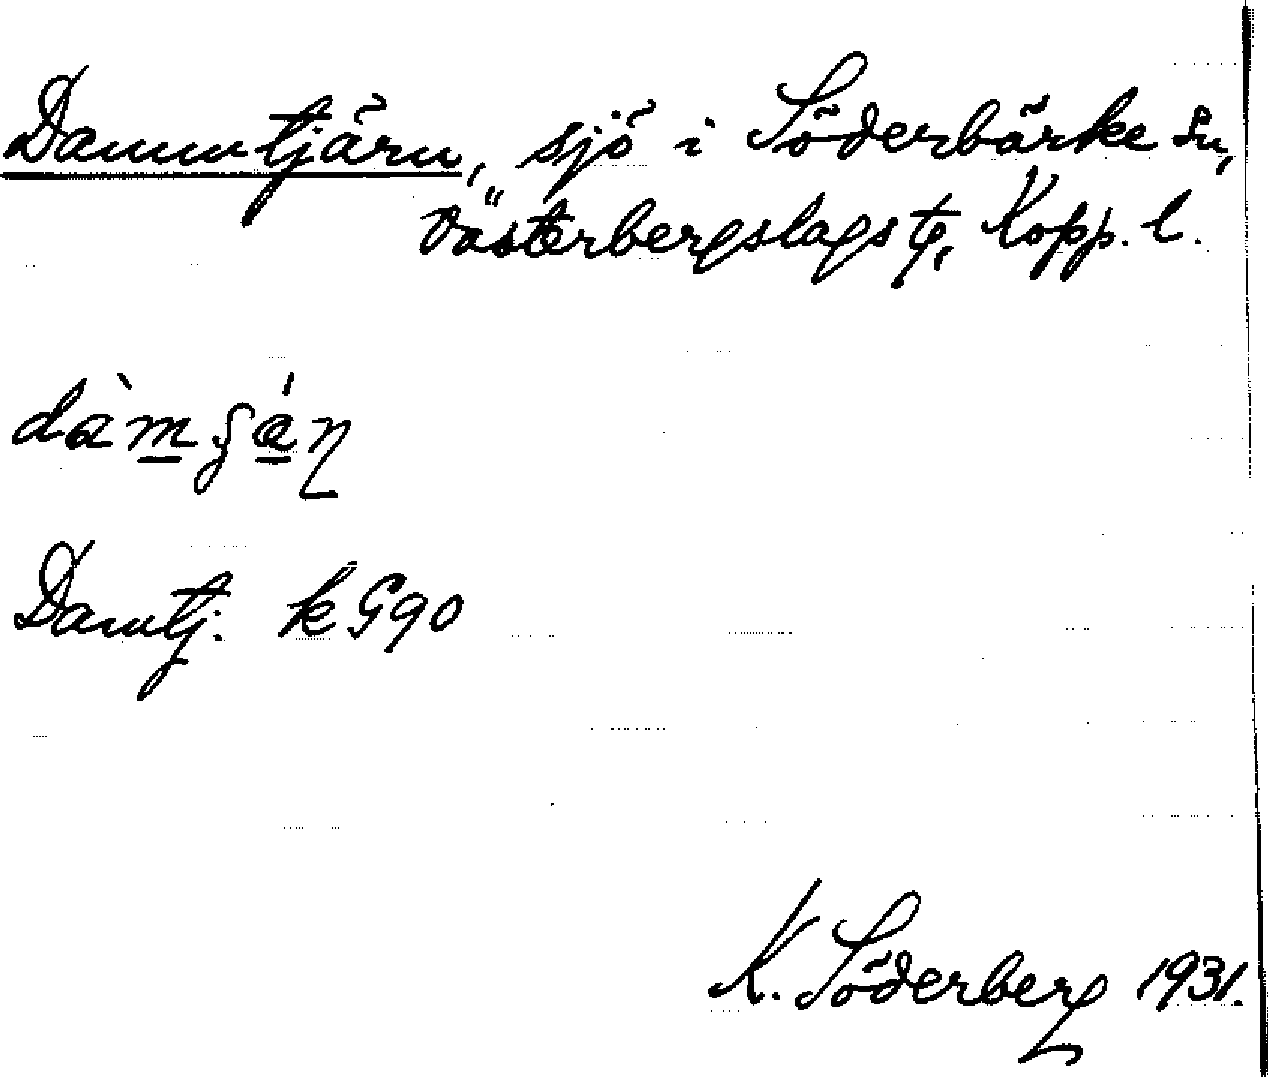 Dammtjärn, sjö i Söderbärke sn,
Västerbergslags tg, Kopp. l.
Damtj. k G90
K. Söderberg 1931.